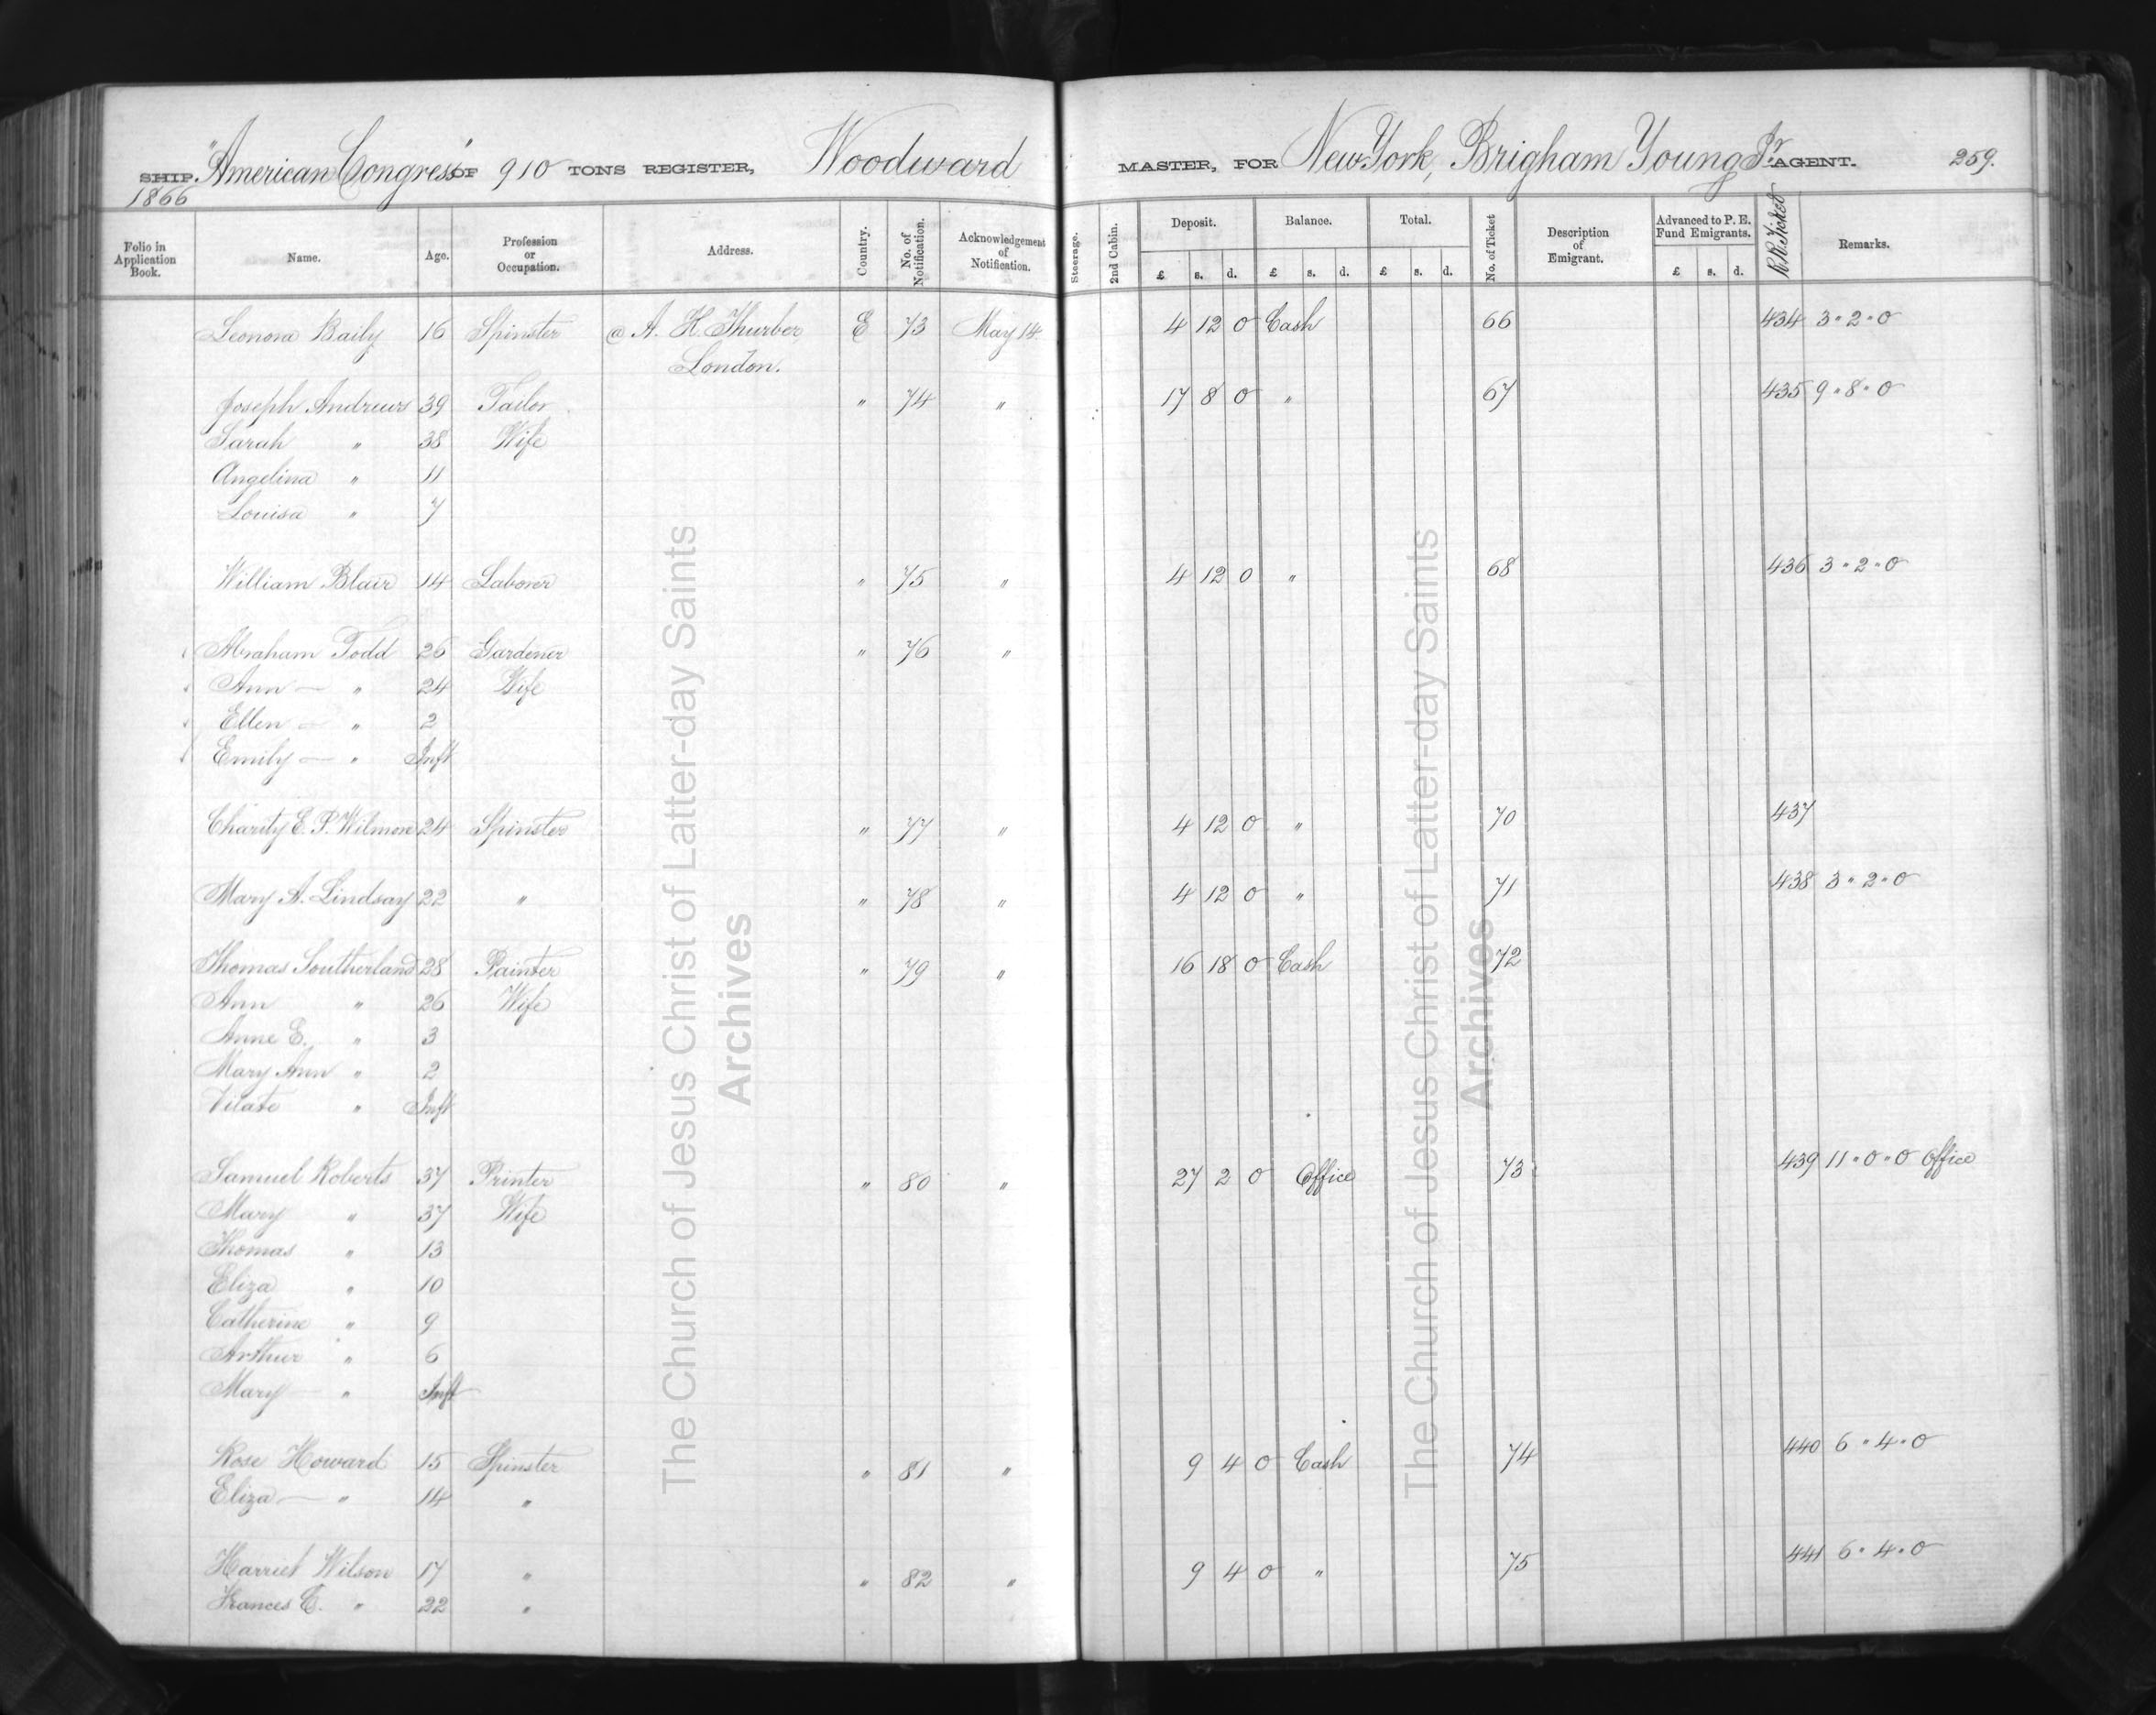 SHIP "American Congress" OF 910 TONS REGISTER, Woodward MASTER, FOR New York, Brigham Young Jr. AGENT. 259.
1866
Folio in Application Book. Name. Age. Profession or Occupation. Address. Country. No. of Notification. Acknowledgement of Notification. Steerage. 2nd Cabin. Deposit. Balance. Total. No. of Ticket Description of Emigrant. Advanced to P. E. Fund Emigrants. R.R. Ticket Remarks.
£ s. d. £ s. d. £ s. d. £ s. d.
Leonora Baily 16 Spinster @ A. H. Thurber E 73 May 14 4 12 0 Cash 66 434 3 " 2 " 0
London.
Joseph Andrews 39 Tailor " 74 " 17 8 0 " 67 435 9 " 8 " 0
Sarah " 38 Wife
Angelina " 11
Louisa " 7
William Blair 14 Laborer " 75 " 4 12 0 " 68 436 3 " 2 " 0
Abraham Todd 26 Gardener " 76 "
Ann — " 24 Wife
Ellen — " 2
Emily — " Inft
Charity E. P. Wilmore 24 Spinster " 77 " 4 12 0 " 70 437
Mary A. Lindsay 22 " " 78 " 4 12 0 " 71 438 3 " 2 " 0
Thomas Southerland 28 Painter " 79 " 16 18 0 Cash 72
Ann " 26 Wife
Anne E. " 3
Mary Ann " 2
Vilate " Inft
Samuel Roberts 37 Printer " 80 " 27 2 0 Office 73 439 11 " 0 " 0 Office
Mary " 37 Wife
Thomas " 13
Eliza " 10
Catherine " 9
Arthur " 6
Mary " Inft
Rose Howard 15 Spinster " 81 " 9 4 0 Cash 74 440 6 " 4 " 0
Eliza — " 14 "
Harriet Wilson 17 " " 82 " 9 4 0 " 75 441 6 " 4 " 0
Frances C. " 22 "
The Church of Jesus Christ of Latter-day Saints
Archives
The Church of Jesus Christ of Latter-day Saints
Archives